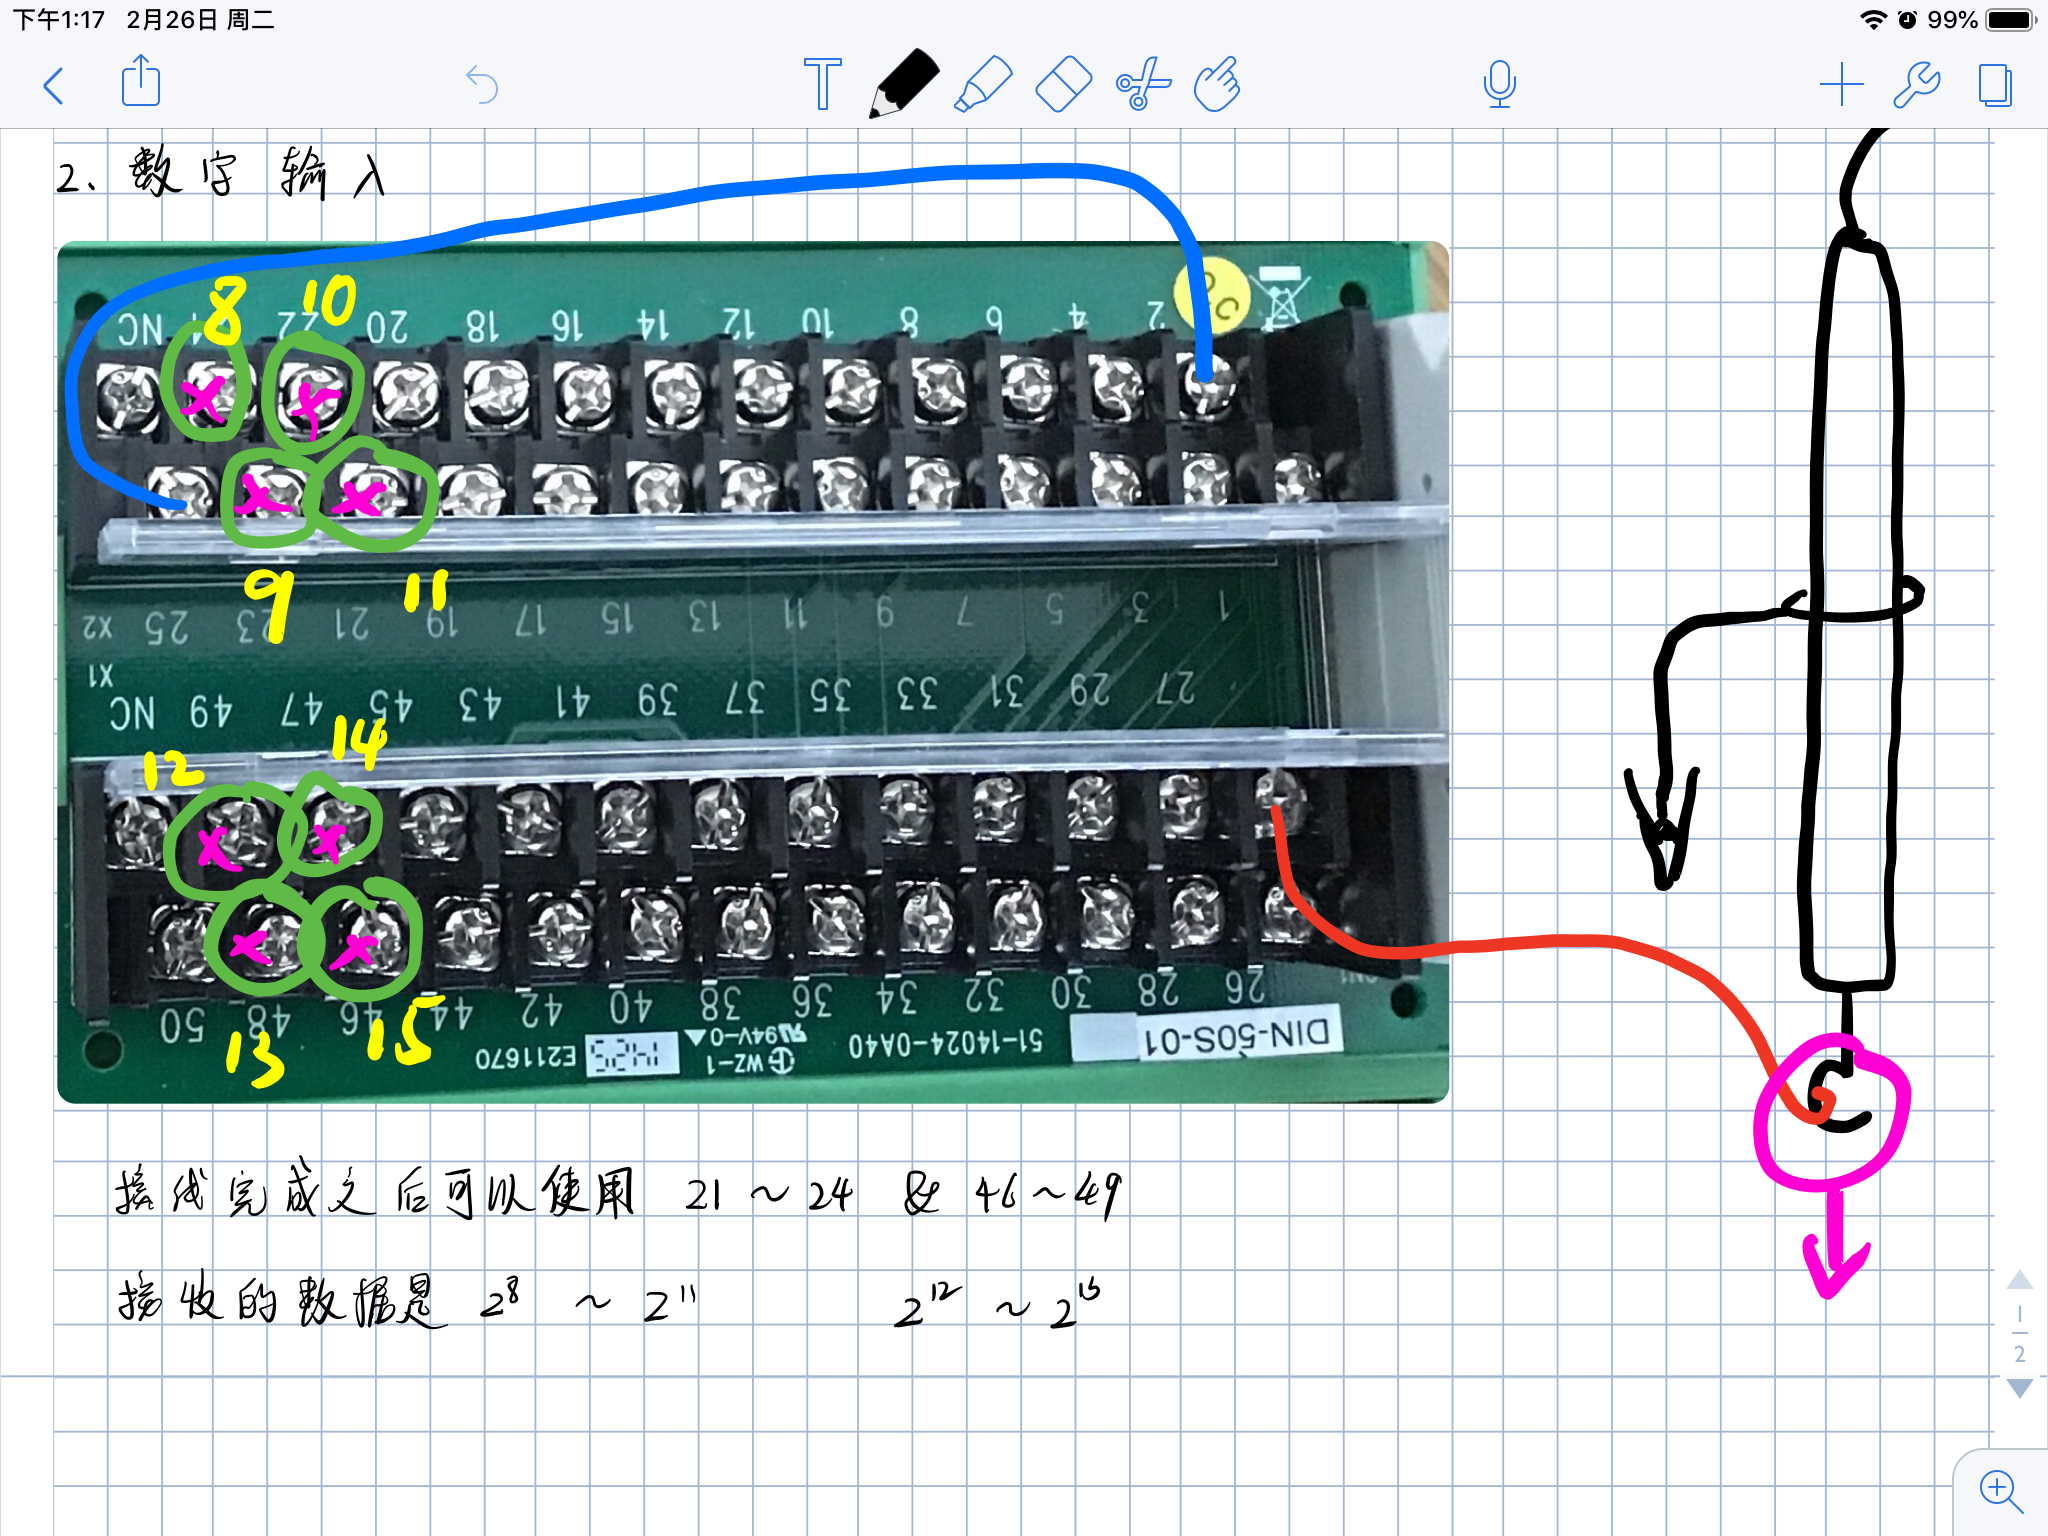 下午1:17 2月26日 周二
99%
2、数字输入
8 10
NC 22 20 18 16 14 12 10 8 6 4 2
9 11
X2 25 23 21 19 17 15 13 11 9 7 5 3 1
X1
NC 49 47 45 43 41 39 37 35 33 31 29 27
12 14
50 48 46 44 42 40 38 36 34 32 30 28 26
13 15
E211670 WZ-1 94V-0 51-14024-0A40 DIN-50S-01
接线完成之后可以使用 21~24 & 46~49
接收的数据是 2⁸ ~ 2¹¹ 2¹² ~ 2¹⁵
1
2